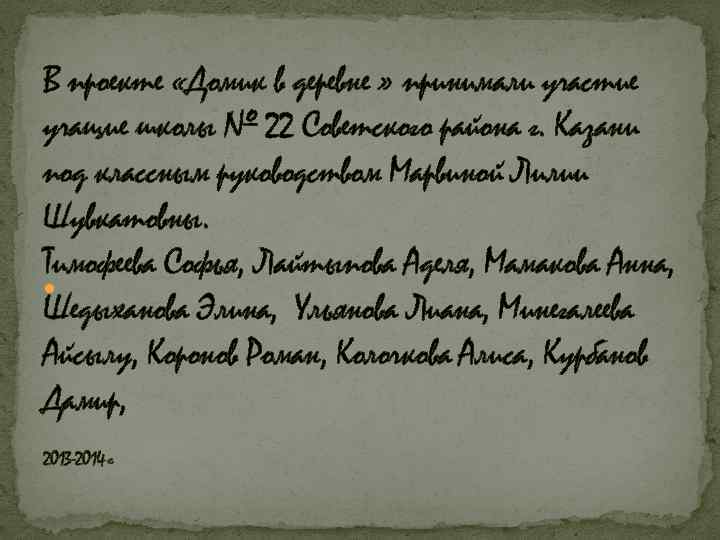 В проекте «Домик в деревне » принимали участие
учащие школы № 22 Советского района г. Казани
под классным руководством Марвиной Лилии
Шувкатовны.
Тимофеева Софья, Лайтыпова Аделя, Мамакова Анна,
Шедыханова Элина, Ульянова Лиана, Минегалеева
Айсылу, Коронов Роман, Колочкова Алиса, Курбанов
Дамир,
2013-2014 г